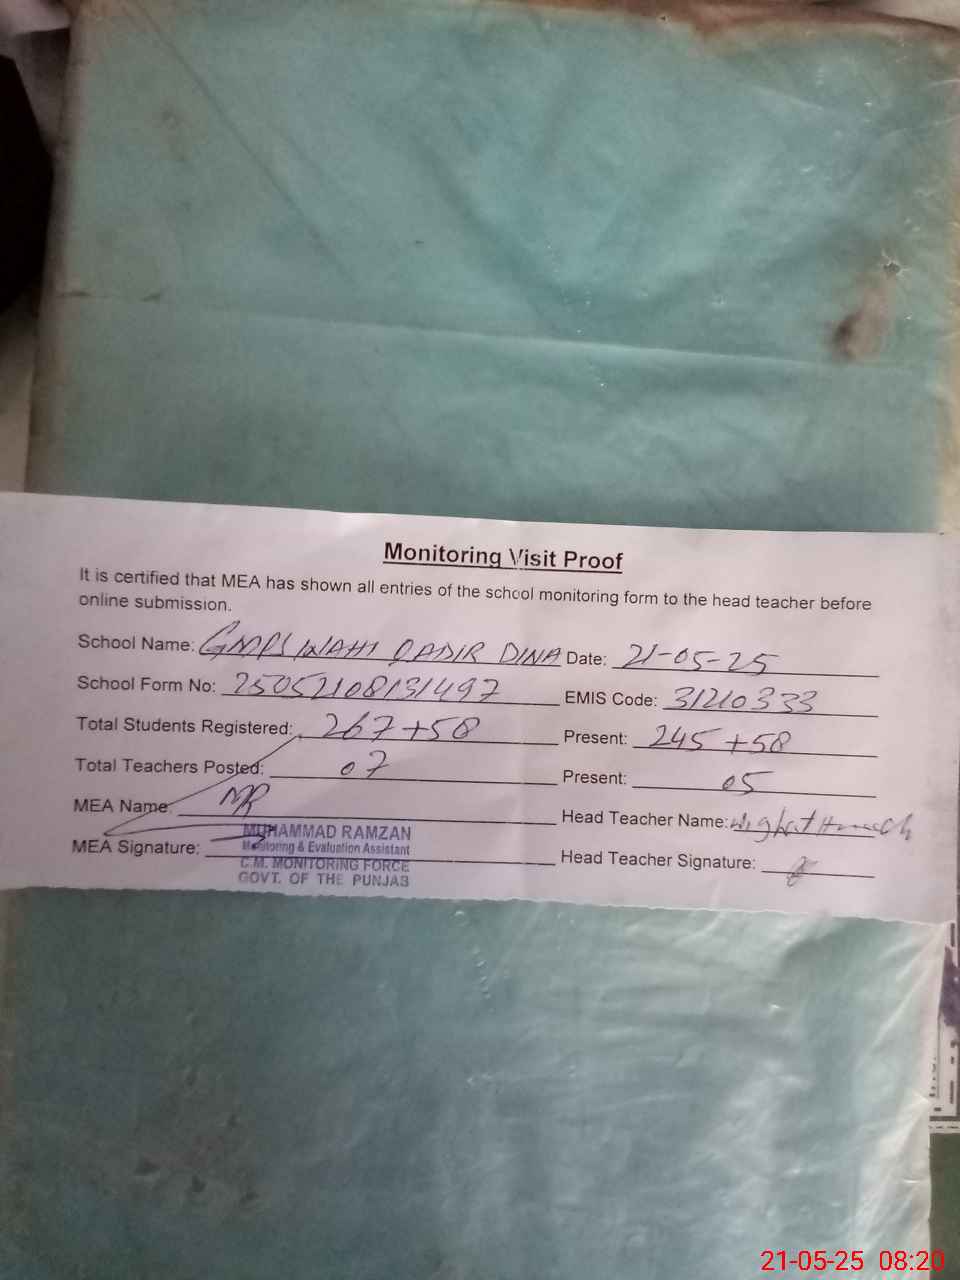 Monitoring Visit Proof
It is certified that MEA has shown all entries of the school monitoring form to the head teacher before
online submission.
School Name: GMPS WAHI QADIR DINA Date: 21-05-25
School Form No: 25052108131497 EMIS Code: 31210333
Total Students Registered: 267+58 Present: 245+58
Total Teachers Posted: 07 Present: 05
MEA Name: MR Head Teacher Name:
MUHAMMAD RAMZAN
MEA Signature: Head Teacher Signature:
Monitoring & Evaluation Assistant
C.M. MONITORING FORCE
GOVT. OF THE PUNJAB
21-05-25 08:20